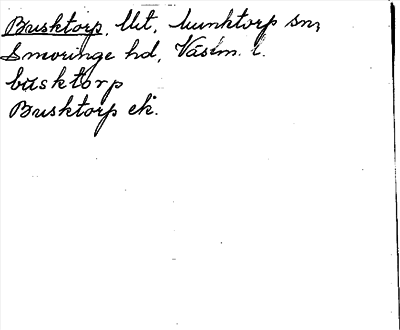 Busktorp, Ut, Munktorp sn,
Snevringe hd, Västm. l.
busktorp
Busktorp ek.